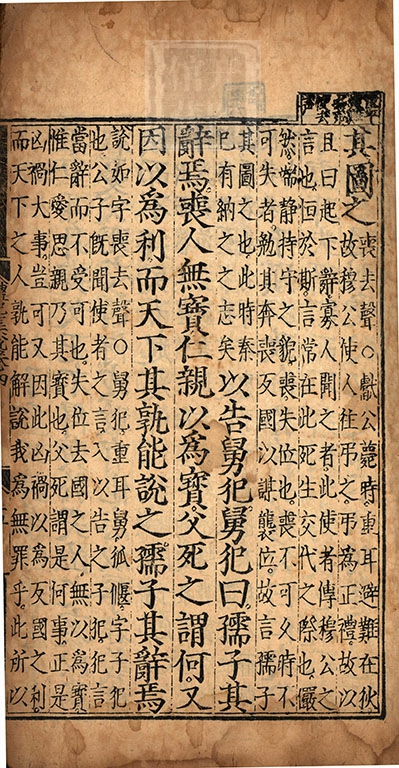 其圖之
喪去聲○獻公薨時重耳避難在狄
故穆公使人往弔之弔爲正禮故以
且曰起下辭寡人聞之者此使者傳穆公之
言也恒於斯言常在此死生交代之際也儼
然端靜持守之貌喪失位也喪不可久時不
可失者勉其奔喪反國以謀襲位故言孺子
其圖之也此時秦
已有納之之志矣
以告舅犯舅犯曰孺子其
辭焉喪人無寶仁親以爲寶父死之謂何又
因以爲利而天下其孰能說之孺子其辭焉
說如字喪去聲○舅犯重耳舅狐偃字子犯
也公子旣聞使者之言入以告之子犯犯言
當辭而不受可也失位去國之人無以爲寶
惟仁愛思親乃其寶也父死謂是何事正是
凶禍大事豈可又因此凶禍以爲反國之利
而天下之人孰能解說我爲無罪乎此所以